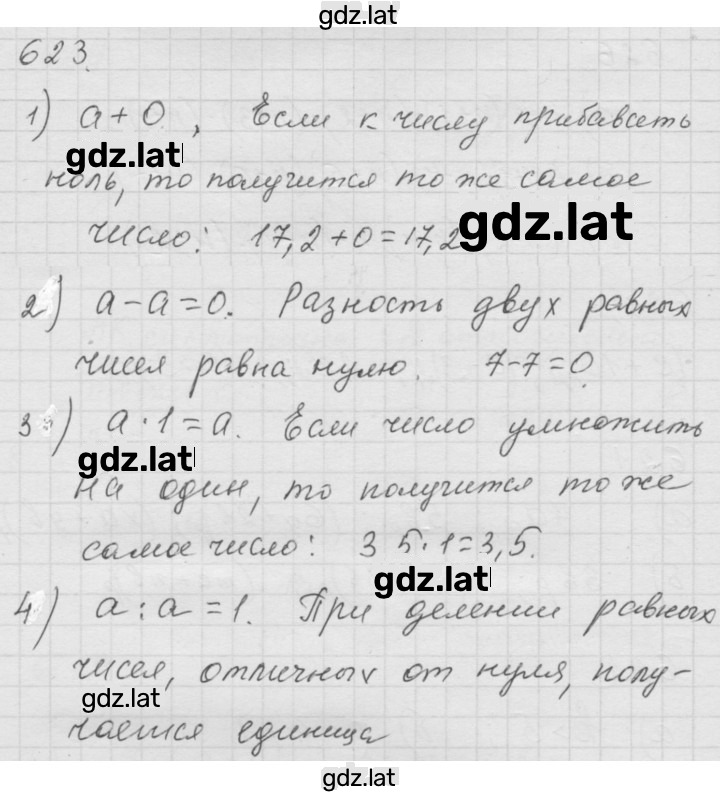 gdz.lat
623.
1) a + 0 , Если к числу прибавить
gdz.lat
ноль, то получится то же самое
число: 17,2 + 0 = 17,2
gdz.lat
2) a - a = 0. Разность двух равных
чисел равна нулю. 7 - 7 = 0.
3) a · 1 = a. Если число умножить
gdz.lat
на один, то получится то же
самое число: 3 5 · 1 = 3,5.
gdz.lat
4) a : a = 1. При делении равных
чисел, отличных от нуля, полу-
gdz.lat
чается единица
gdz.lat